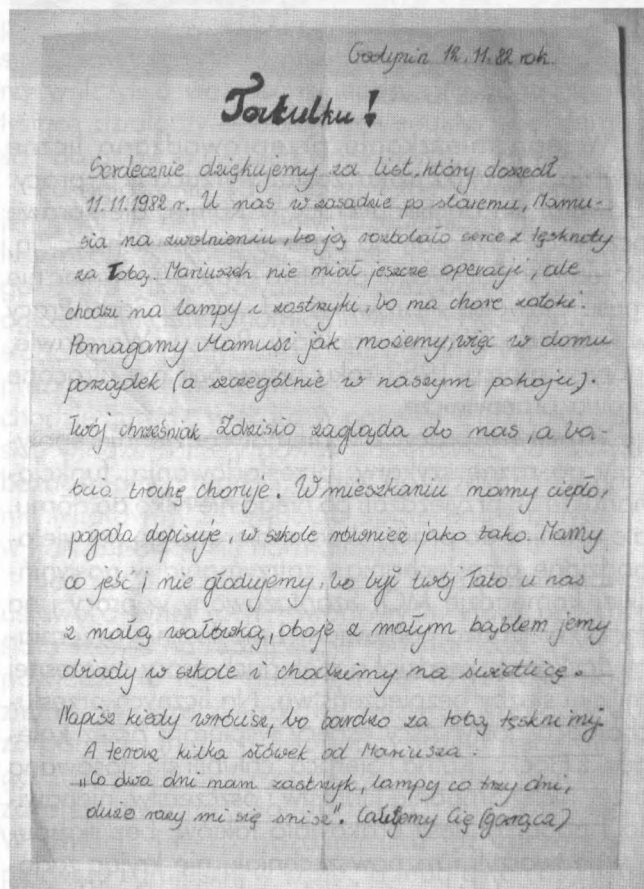 Gostynin 12.11.82 rok.
Tatulku!
Serdecznie dziękujemy za list, który doszedł
11.11.1982 r. U nas w zasadzie po staremu, Mamu-
sia na zwolnieniu, bo ją rozbolało serce z tęsknoty
za Tobą. Mariuszek nie miał jeszcze operacji, ale
chodzi na lampy i zastrzyki, bo ma chore zatoki.
Pomagamy Mamusi jak możemy, więc w domu
porządek (a szczególnie w naszym pokoju).
Twój chrześniak Zdzisio zagląda do nas, a ba-
bcia trochę choruje. W mieszkaniu mamy ciepło,
pogoda dopisuje, w szkole również jako tako. Mamy
co jeść i nie głodujemy, bo był twój Tato u nas
z małą wałówką, oboje z małym bąblem jemy
obiady w szkole i chodzimy na świetlicę.
Napisz kiedy wrócisz, bo bardzo za tobą tęsknimy
A teraz kilka słówek od Mariusza:
"Co dwa dni mam zastrzyk, lampy co trzy dni,
dużo razy mi się śnisz". Całujemy Cię (gorąco)